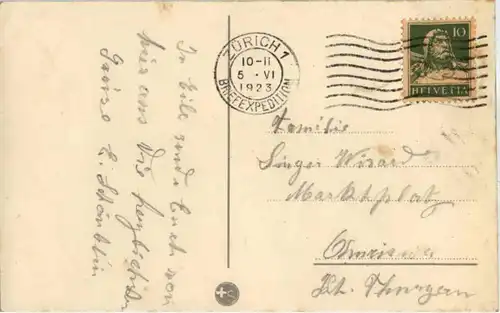 In Eile sende Euch von
hier aus Die herzlichsten
Grüsse E. Schäublin
ZÜRICH 1
10-11
5 . VI
1923
BRIEFEXPEDITION
10
HELVETIA
Familie
Singer
Marktplatz
Kt. Thurgau